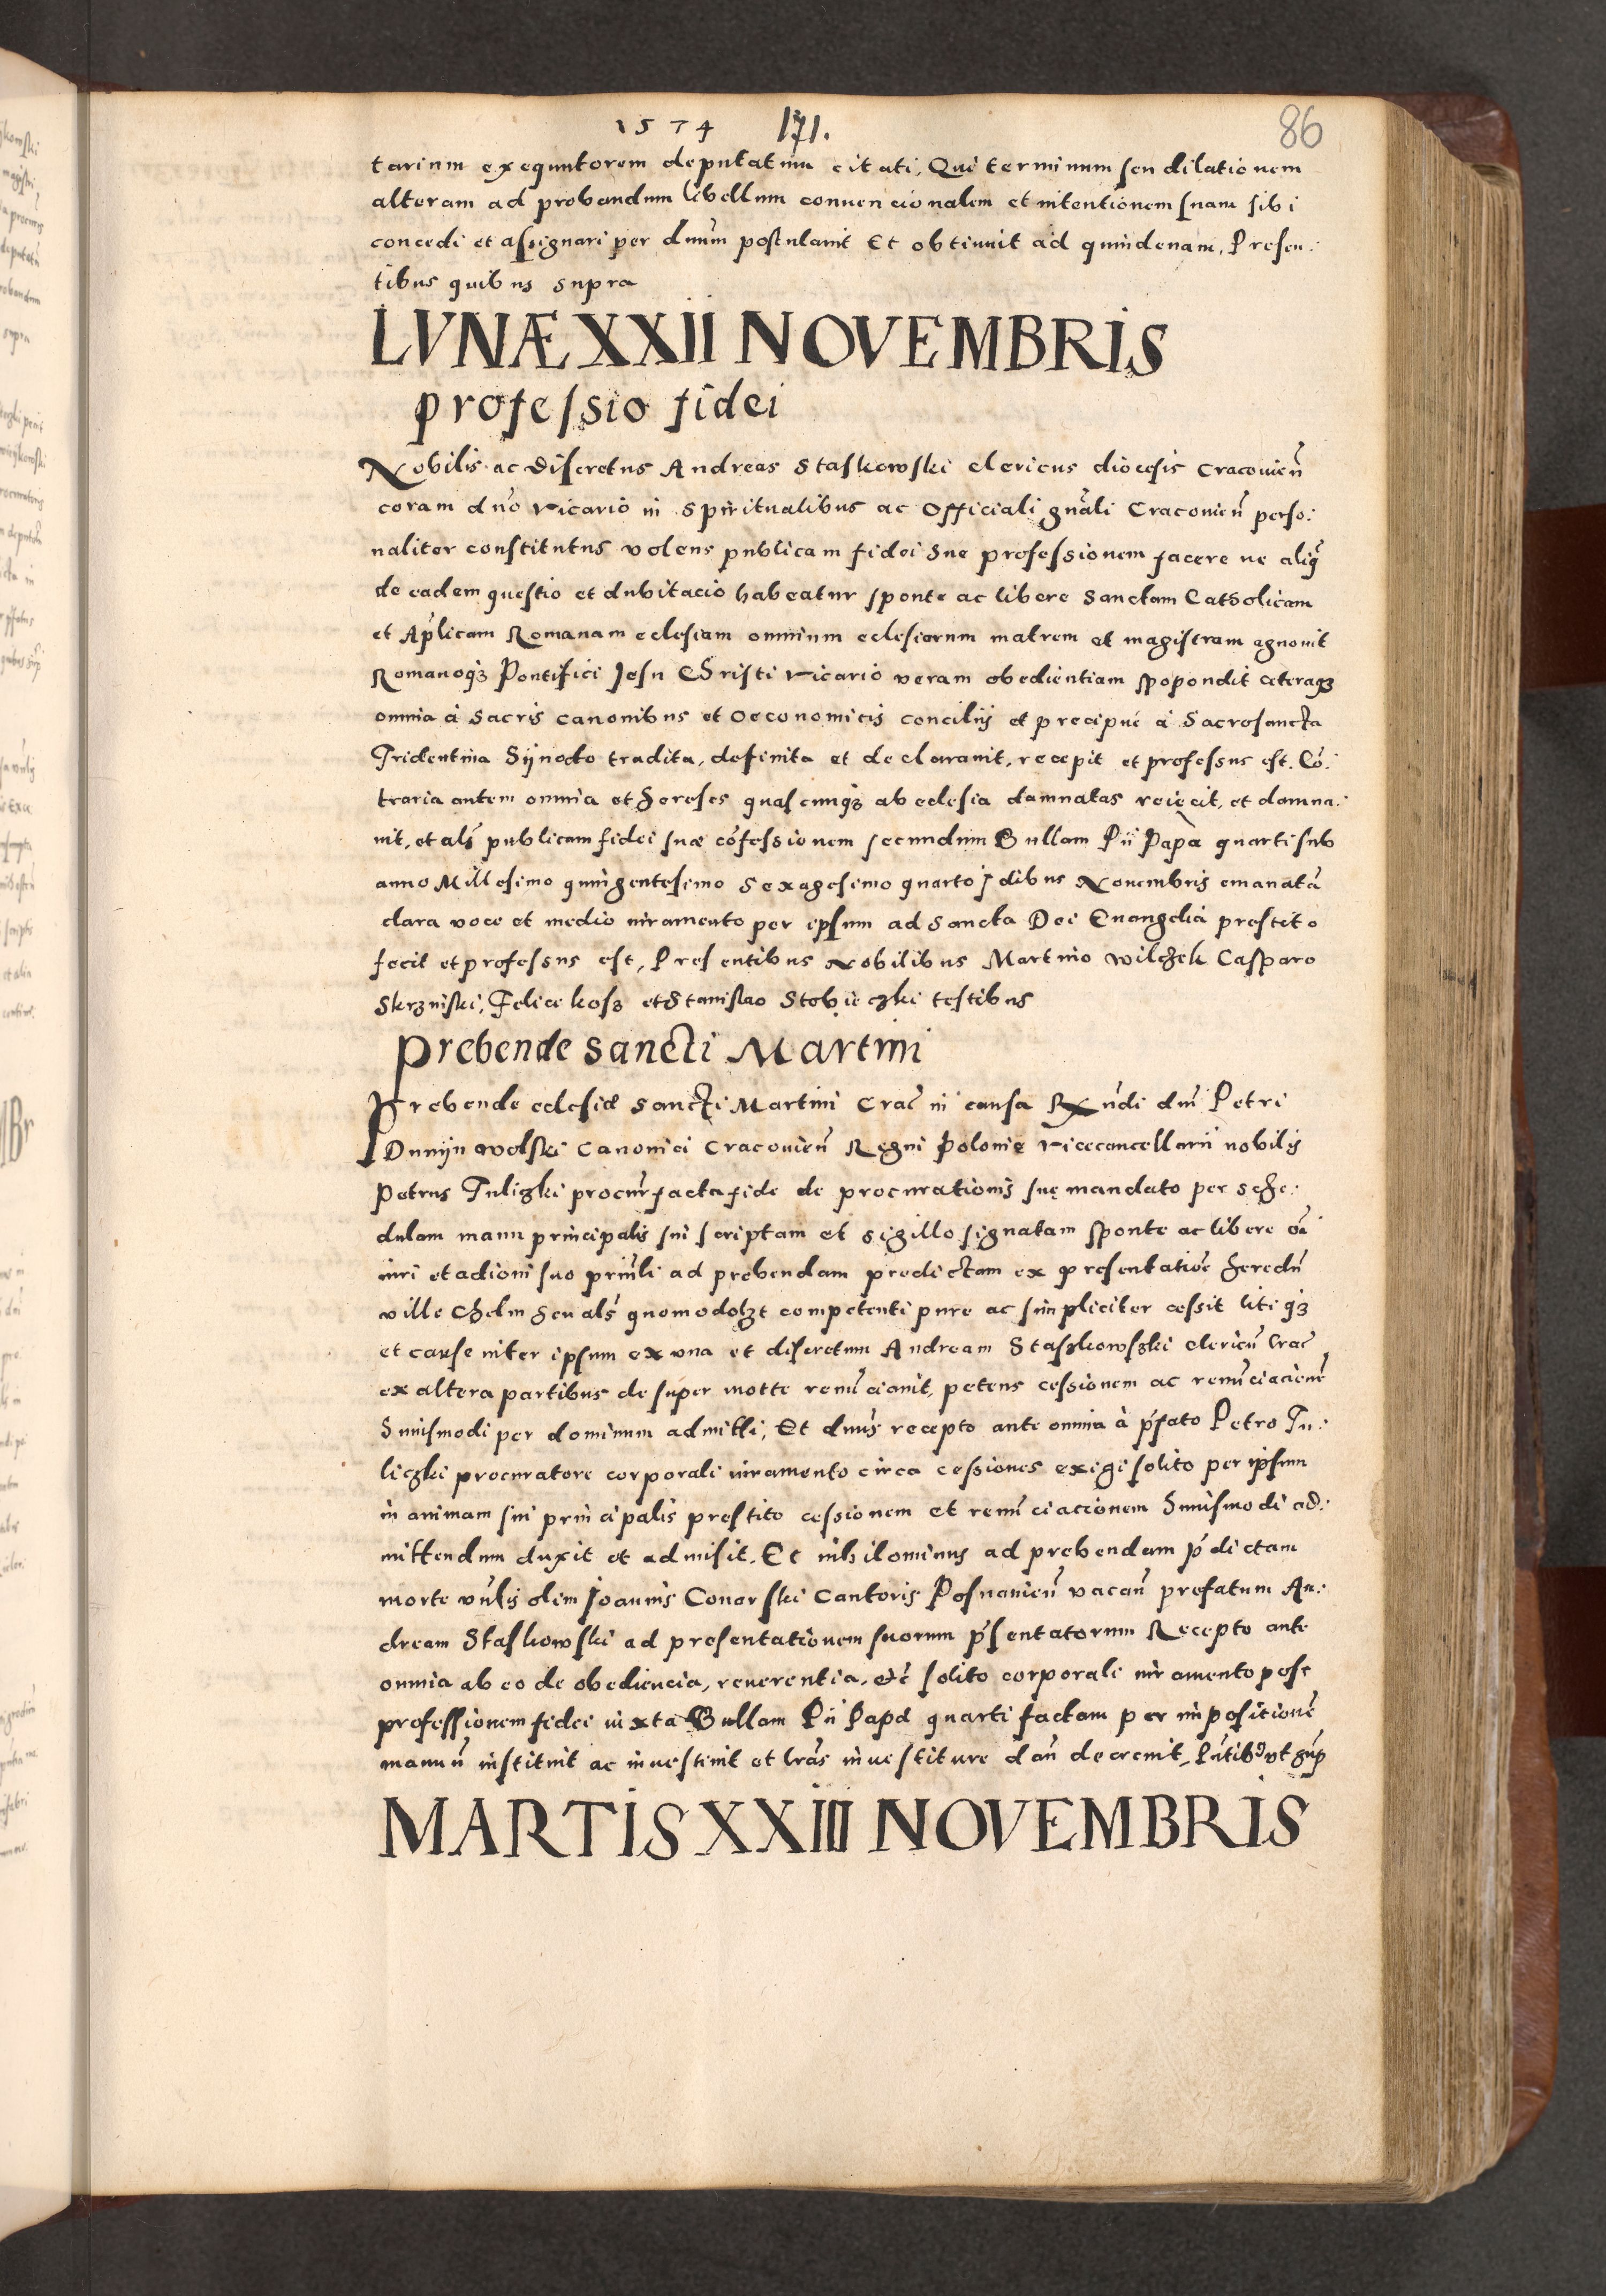 1574 171. 86
tarium exequutorem deputatum citati, Qui terminum seu dilationem
alteram ad probandum libellum conuencionalem et intentionem suam sibi
concedi et assignari per dnum postulauit Et obtinuit ad quindenam, Presen:
tibus quibus supra
LVNÆ XXII NOVEMBRIS
professio fidei
Nobilis ac discretus Andreas Staskowski clericus diocesis Cracouieñ
coram dno vicario in Spiritualibus ac Officiali gnãli Cracouieñ perso:
naliter constitutus volens publicam fidei sue professionem facere ne aliq̃
de eadem questio et dubitacio habeatur sponte ac libere Sanctam Catholicam
et Aplicam Romanam eclesiam omnium eclesiarum matrem et magistram agnouit
Romanoqȝ Pontifici Jesu Christi vicario veram obedientiam spopondit ceteraqȝ
omnia à sacris canonibus et oeconomicis concilijs et precipuè à Sacrosancta
Tridentina Sÿnodo tradita, definita et declarauit, recepit et professus est. Cõ:
traria autem omnia et hereses quascunqȝ ab eclesia damnatas reiecit, et damna:
uit, et als publicam fidei suæ cõfessionem secundum Bullam Pii Papæ quarti sub
anno Millesimo quingentesimo sexagesimo quarto Jdibus Nouembris emanatã
clara voce et medio iuramento per ipsum ad Sancta Dei Euangelia prestito
fecit et professus est, Presentibus Nobilibus Martino wilczek Casparo
Skrzniski, Felice kosz et Stanislao Stobieczki testibus
prebende sancti Martini
Prebende eclesiæ Sancti Martini Crac̃ in causa Rxndi dni Petri
Duniin wolski Canonici Cracouieñ Regni Polonie vicecancellarii nobilis
Petrus Tuliczki procur̃ facta fide de procurationis suę mandato per sche:
dulam manu principalis sui scriptam et sigillo signatam sponte ac libere oĩ
iuri et actioni suo prinli ad prebendam predictam ex presentatiõe heredũ
ville Chelm seu als quomodolȝt competenti pure ac simpliciter cessit litiqȝ
et cause inter ipsum ex vna et discretum Andream Staszkowszki clericũ Crac̃
ex altera partibus desuper motte renũciauit, petens cessionem ac renũciacionẽ
huiusmodi per dominum admitti, Et dnus recepto ante omnia à pfato Petro Tu:
liczki procuratore corporali iuramento circa cessiones exigi solito per ipsum
in animam sui principalis prestito cessionem et renũciaccionem huiusmodi ad:
mittendum duxit et admisit. Et nihilominus ad prebendam pdictam
morte vnlis olim Joannis Conarski Cantoris Posnanieñ vacañ prefatum An:
dream Staskowski ad presentationem suorum psentatorum Recepto ante
omnia ab eo de obediencia, reuerentia, etc̃ solito corporali iuramento post
professionem fidei iuxta Bullam Pii Papæ quarti factam per impositionẽ
manuũ instituit ac inuestiuit et lrãs inuestiture dañ decreuit, Pñtibꝰ vt sup̃
MARTIS XXIII NOVEMBRIS